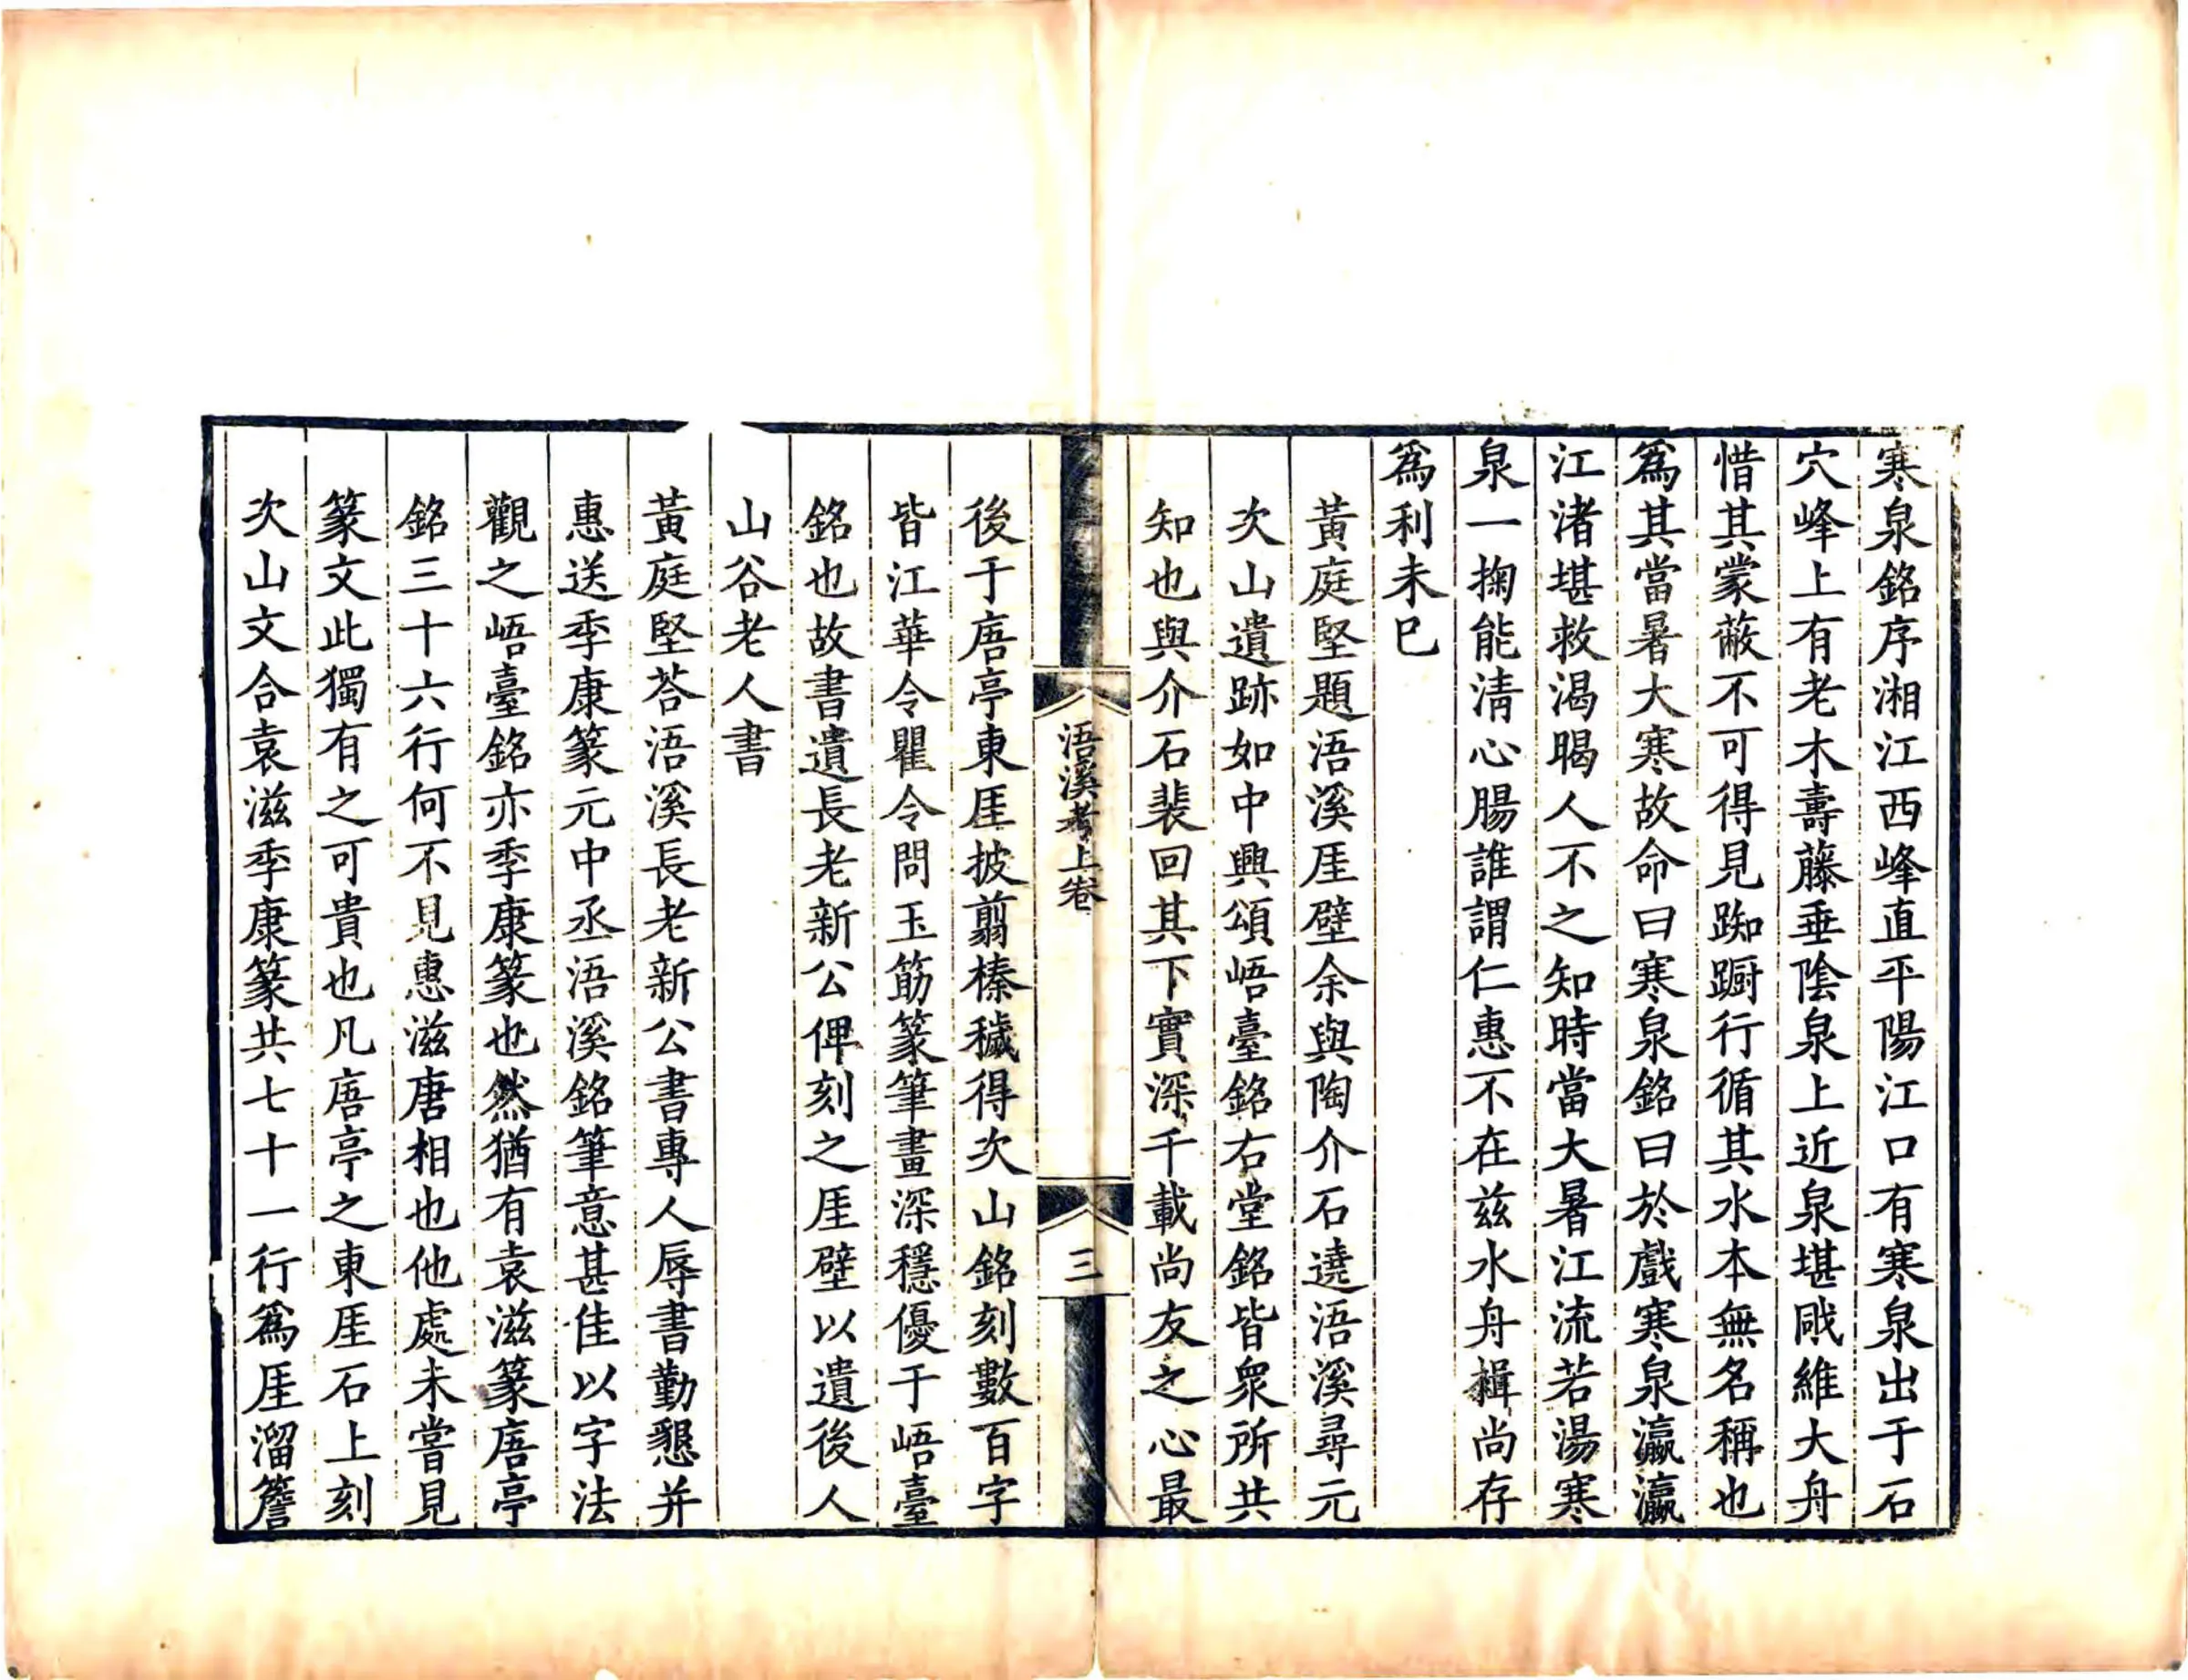 寒泉銘序湘江西峰直平陽江口有寒泉出于石
穴峰上有老木壽藤垂陰泉上近泉堪戙維大舟
惜其蒙蔽不可得見踟躕行循其水本無名稱也
爲其當暑大寒故命曰寒泉銘曰於戲寒泉瀛瀛
江渚堪救渴暍人不之知時當大暑江流若湯寒
泉一掬能清心腸誰謂仁惠不在兹水舟楫尚存
爲利未已
黃庭堅題浯溪厓壁余與陶介石遶浯溪尋元
次山遺跡如中興頌峿臺銘右堂銘皆衆所共
知也與介石裴回其下實深千載尚友之心最
浯溪考上卷
三
後于㾿亭東厓披翦榛穢得次山銘刻數百字
皆江華令瞿令問玉筯篆筆畫深穩優于峿臺
銘也故書遺長老新公俾刻之厓壁以遺後人
山谷老人書
黃庭堅荅浯溪長老新公書專人辱書勤懇并
惠送季康篆元中丞浯溪銘筆意甚佳以字法
觀之峿臺銘亦季康篆也然猶有袁滋篆㾿亭
銘三十六行何不見惠滋唐相也他處未嘗見
篆文此獨有之可貴也凡㾿亭之東厓石上刻
次山文合袁滋季康篆共七十一行爲厓溜簷